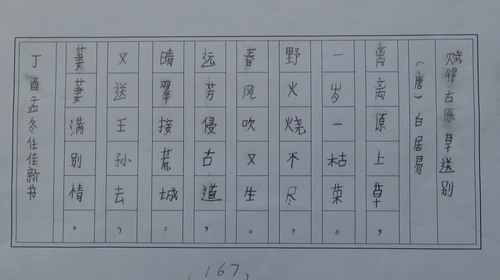 赋得古原草送别
(唐)白居易
离离原上草,
一岁一枯荣。
野火烧不尽,
春风吹又生。
远芳侵古道,
晴翠接荒城。
又送王孙去,
萋萋满别情。
丁酉孟冬任佳新书
167